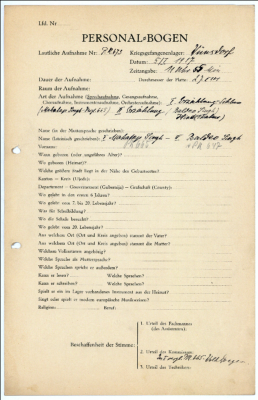 Lfd. Nr
PERSONAL-BOGEN
Lautliche Aufnahme Nr: PK 673
Kriegsgefangenenlager: Wünsdorf
Datum:
Zeitangabe: 11 Uhr 55 Min
Dauer der Aufnahme:
Durchmesser der Platte: 27 cm
Raum der Aufnahme:
Art der Aufnahme (Sprechaufnahme, Gesangsaufnahme,
Choraufnahme, Instrumentenaufnahme, Orchesteraufnahme): I. Erzählung
II Erzählung
Name (in der Muttersprache geschrieben):
Name (lateinisch geschrieben): I Singh II Baldeo Singh
Vorname:
Wann geboren (oder ungefähres Alter)?
Wo geboren (Heimat)?
Welche größere Stadt liegt in der Nähe des Geburtsortes?
Kanton — Kreis (Ujedz):
Departement — Gouvernement (Gubernija) — Grafschaft (County):
Wo gelebt in den ersten 6 Jahren?
Wo gelebt vom 7. bis 20. Lebensjahr?
Was für Schulbildung?
Wo die Schule besucht?
Wo gelebt vom 20. Lebensjahr?
Aus welchem Ort (Ort und Kreis angeben) stammt der Vater?
Aus welchem Ort (Ort und Kreis angeben) stammt die Mutter?
Welchem Volksstamm angehörig?
Welche Sprache als Muttersprache?
Welche Sprachen spricht er außerdem?
Kann er lesen? Welche Sprachen?
Kann er schreiben? Welche Sprachen?
Spielt er ein im Lager vorhandenes Instrument aus der Heimat?
Singt oder spielt er moderne europäische Musikweisen?
Religion: Beruf:
1. Urteil des Fachmannes
(des Assistenten):
Beschaffenheit der Stimme:
2. Urteil des Kommissars:
3. Urteil des Technikers: